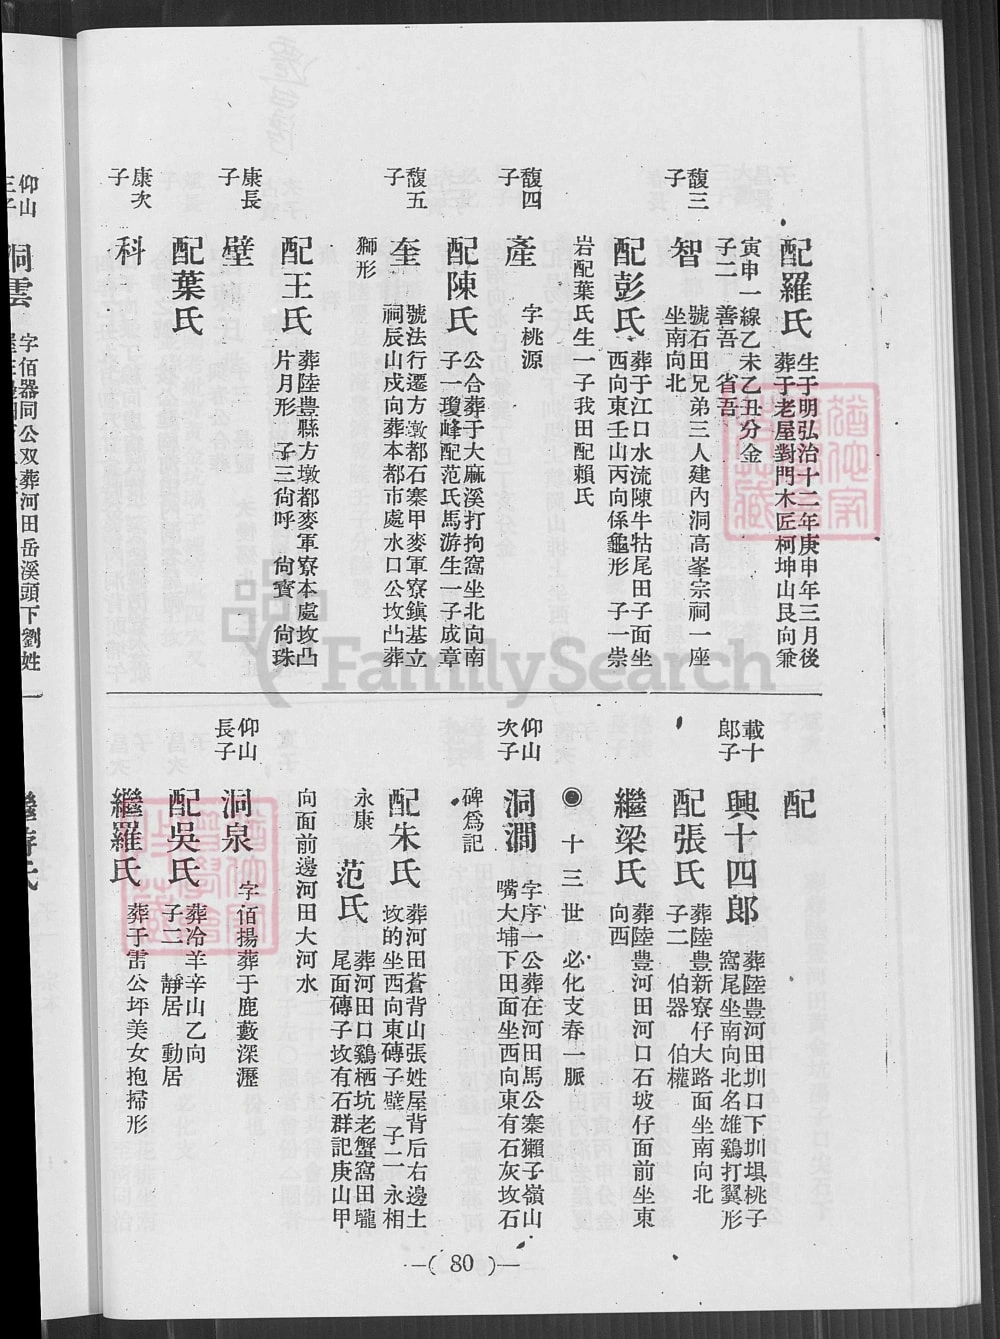 配羅氏 生于明弘治十二年庚申年三月後
葬于老屋對門木匠柯坤山艮向兼
寅申一線乙未乙丑分金
子二 善吾 省吾
馥三子 智 號石田兄弟三人建內洞高峯宗祠一座
坐南向北
配彭氏 葬于江口水流陳牛牯尾田子面坐
西向東壬山丙向係龜形 子一崇
岩配葉氏生一子我田配賴氏
馥四子 產 字桃源
配陳氏 公合葬于大麻溪打拘窩坐北向南
子一瓊峰配范氏馬游生一子成章
馥五子 奎 號法行遷方墩都石寨甲麥軍寮鎮基立
祠辰山戌向葬本都市處水口公坟凸葬
獅形
配王氏 葬陸豊縣方墩都麥軍寮本處坟凸
片月形 子三尙呼 尙賓 尙珠
康長子 壁
配葉氏
康次子 科
配
載十郎子 興十四郎 葬陸豊河田圳口下圳埧桃子
窩尾坐南向北名雄鷄打翼形
配張氏 葬陸豊新寮仔大路面坐南向北
子二 伯器 伯權
繼梁氏 葬陸豊河田河口石坡仔面前坐東
向西
◉ 十三世 必化支春一脈
仰山次子 洞澗 字序一公葬在河田馬公寨獺子嶺山
嘴大埔下田面坐西向東有石灰坟石
碑爲記
配朱氏 葬河田蒼背山張姓屋背后右邊土
坟的坐西向東磚子壁 子二 永相
永康
范氏 葬河田口鷄栖坑老蟹窩田壠
尾面磚子坟有石群記庚山甲
向面前邊河田大河水
仰山長子 洞泉 字佰揚葬于鹿藪深瀝
配吳氏 葬冷羊辛山乙向
子二 靜居 動居
繼羅氏 葬于雷公坪美女抱掃形
—( 80 )—
仰山三子 洞雲 字佰器同公双葬河田岳溪頭下劉姓
FamilySearch